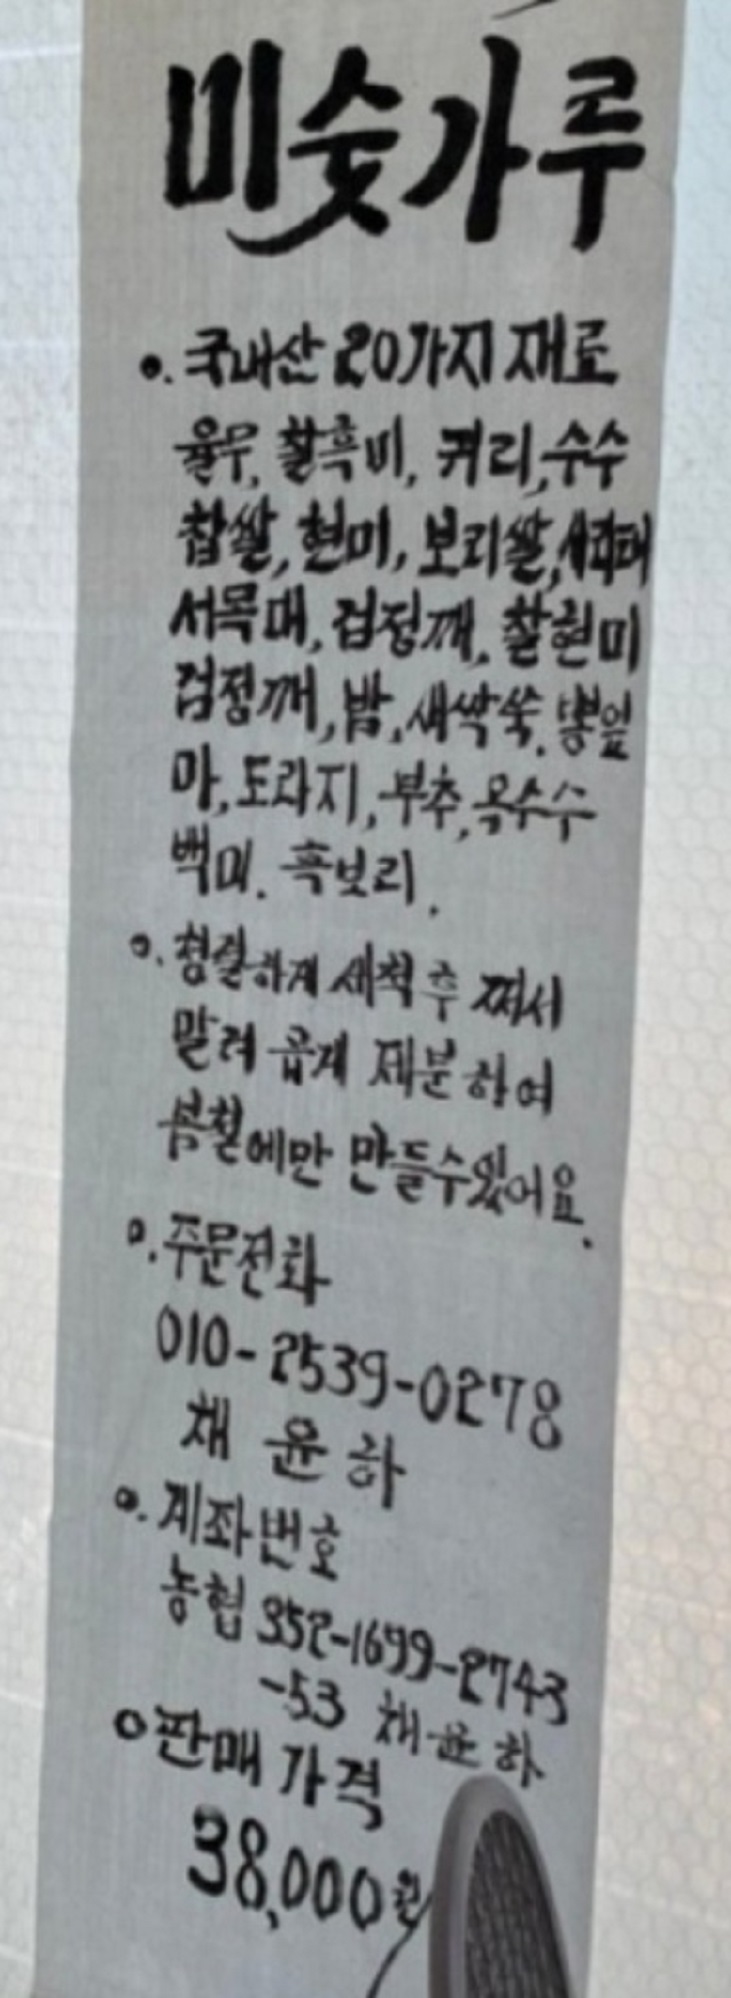 미숫가루
•. 국내산 20가지 재료
율무, 찰흑미, 귀리, 수수
찹쌀, 현미, 보리쌀, 서리태
서목태, 검정깨, 찰현미
검정깨, 밤, 새싹쑥, 뽕잎
마, 도라지, 부추, 옥수수
백미. 흑보리.
o. 청결하게 세척 후 쪄서
말려 곱게 제분하여
봄철에만 만들수있어요.
o. 주문전화
010-2539-0278
채 윤 하
o. 계좌번호
농협 352-1699-2743
-53 채윤하
o 판매 가격
38,000원